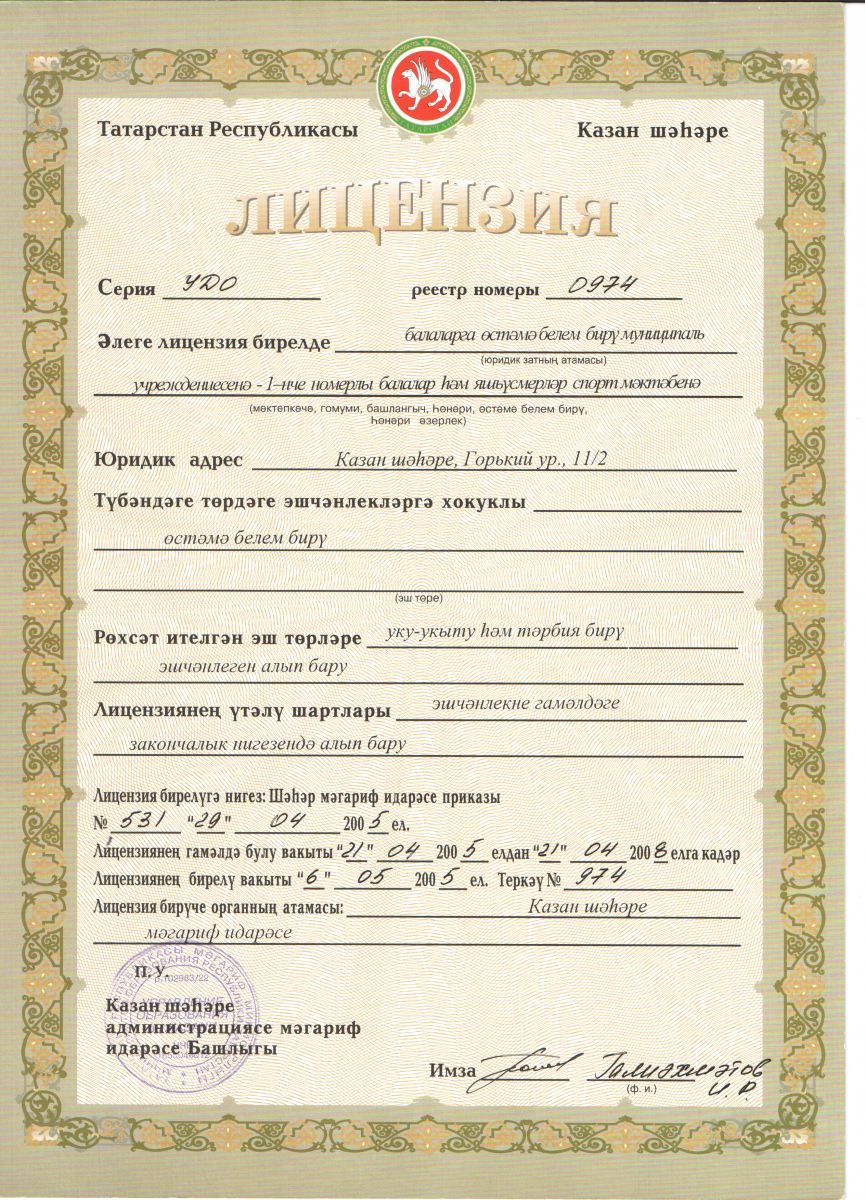 ТАТАРСТАН
Татарстан Республикасы Казан шәһәре
ЛИЦЕНЗИЯ
Серия УДО реестр номеры 0974
Әлеге лицензия бирелде балаларга өстәмә белем бирү муниципаль
(юридик затның атамасы)
учреждениесенә - 1–нче номерлы балалар һәм яшьүсмерләр спорт мәктәбенә
(мәктәпкәчә, гомуми, башлангыч, һөнәри, өстәмә белем бирү,
һөнәри әзерлек)
Юридик адрес Казан шәһәре, Горький ур., 11/2
Түбәндәге төрдәге эшчәнлекләргә хокуклы
өстәмә белем бирү
(эш төре)
Рөхсәт ителгән эш төрләре уку-укыту һәм тәрбия бирү
эшчәнлеген алып бару
Лицензиянең үтәлү шартлары эшчәнлекне гамәлдәге
закончалык нигезендә алып бару
Лицензия бирелүгә нигез: Шәһәр мәгариф идарәсе приказы
№ 531 "29" 04 2005 ел.
Лицензиянең гамәлдә булу вакыты "21" 04 2005 елдан "21" 04 2008 елга кадәр
Лицензиянең бирелү вакыты "6" 05 2005 ел. Теркәү № 974
Лицензия бирүче органның атамасы: Казан шәһәре
мәгариф идарәсе
П. У.
УПРАВЛЕНИЕ
ОБРАЗОВАНИЯ
Казан шәһәре
администрациясе мәгариф
идарәсе Башлыгы
Имза Галиәхмәтов
(ф. и.) И. Р.